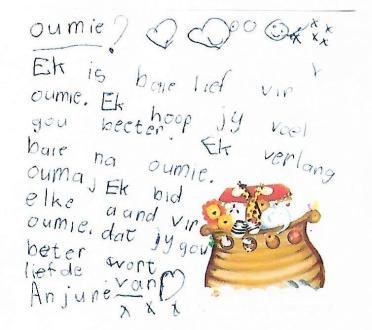 oumie?
Ek is baie lief vir
oumie. Ek hoop jy voel
gou beeter. Ek verlang
baie na oumie.
ouma, Ek bid
elke aand vir
oumie. dat jy gou
beter wort
liefde van
Anjuné
x x x